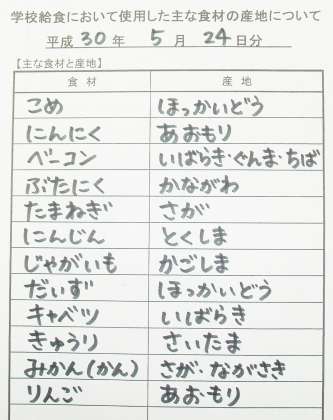 学校給食において使用した主な食材の産地について
平成 30 年 5 月 24 日分
【主な食材と産地】
食材 産地
こめ ほっかいどう
にんにく あおもり
ベーコン いばらき・ぐんま・ちば
ぶたにく かながわ
たまねぎ さが
にんじん とくしま
じゃがいも かごしま
だいず ほっかいどう
キャベツ いばらき
きゅうり さいたま
みかん(かん) さが・ながさき
りんご あおもり